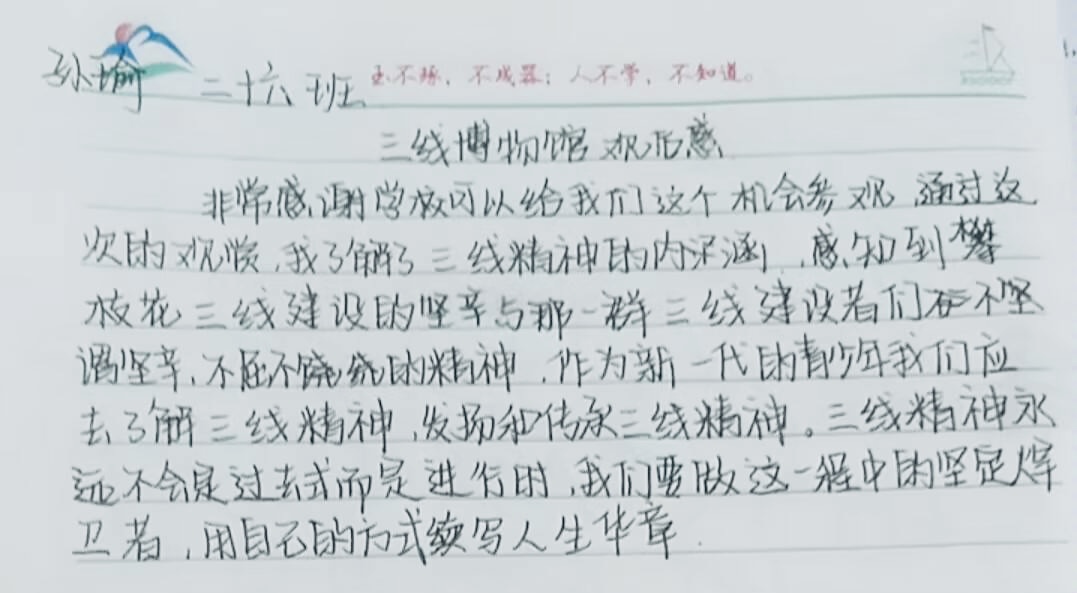 孙瑜 二十六班 玉不琢,不成器;人不学,不知道。
三线博物馆观后感
非常感谢学校可以给我们这个机会参观,通过这
次的观赏,我了解了三线精神的内深涵,感知到攀
枝花三线建设的坚辛与那一群三线建设者们不坚
谓坚辛,不屈不饶的精神,作为新一代的青少年我们应
去了解三线精神,发扬和传承三线精神。三线精神永
远不会是过去式而是进行时,我们要做这一程中的坚定悍
卫者,用自己的方式续写人生华章.